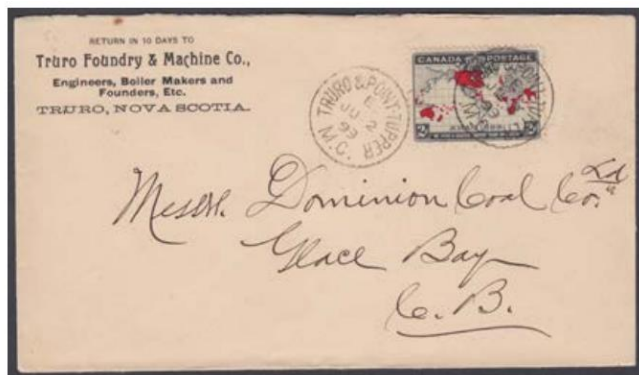 RETURN IN 10 DAYS TO
Truro Foundry & Machine Co.,
Engineers, Boiler Makers and
Founders, Etc.
TRURO, NOVA SCOTIA.
TRURO & POINT TUPPER
E
JU 2
99
M.C.
CANADA POSTAGE
2
2
Messrs. Dominion Coal Co. Ltd
Glace Bay
C. B.